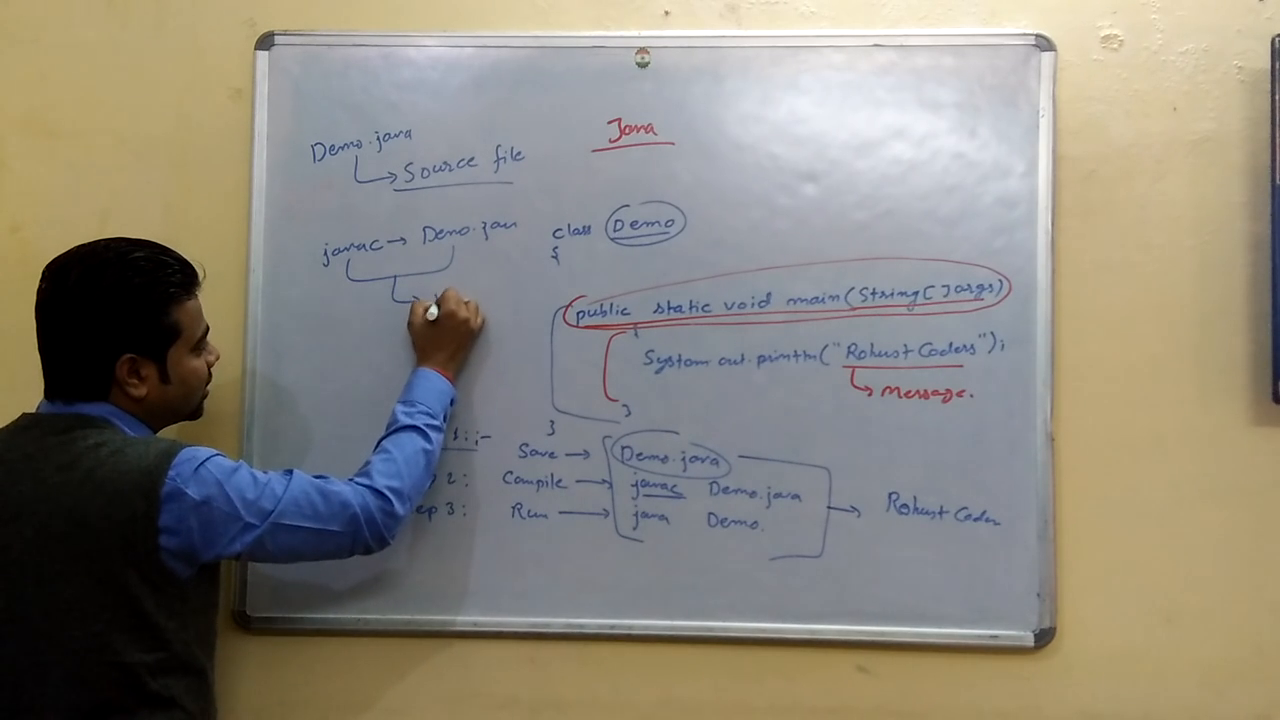 Java
Demo.java
Source file
javac → Demo.java
class Demo
{
public static void main(String[]args)
{
System.out.println("Robust Coders");
Message.
}
}
1:-
Save → Demo.java
2: Compile → javac Demo.java
ep 3: Run → java Demo.
Robust Coder